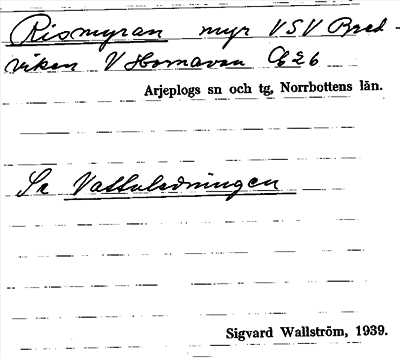 Rismyran myr VSV Bred-
viken V Hornavan C26
Arjeplogs sn och tg, Norrbottens län.
Se Vattuledningen
Sigvard Wallström, 1939.